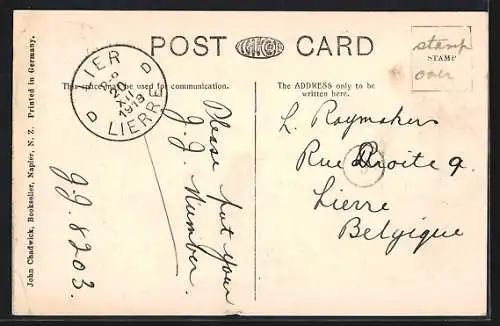 POST CARD
This space may be used for communication.
The ADDRESS only to be
written here.
stamp
STAMP
over
LIER
D D
20
XII
1913
LIERRE
John Chadwick, Bookseller, Napier, N. Z. Printed in Germany.
J.J. 8203.
Please put your
J.J. Number.
L. Raymakers
Rue Droite 9.
Lierre
Belgique